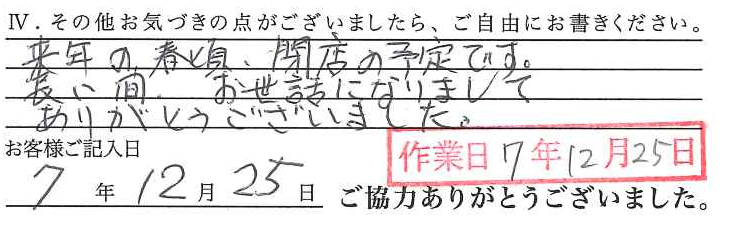 Ⅳ．その他お気づきの点がございましたら、ご自由にお書きください。
来年の春頃、閉店の予定です。
長い間、お世話になりまして
ありがとうございました。
お客様ご記入日
作業日 7年12月25日
7年12月25日 ご協力ありがとうございました。